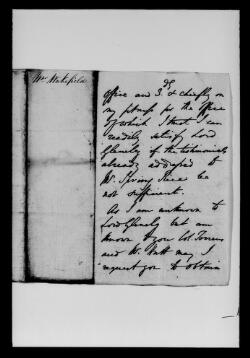 Mr Wakefield
25
office and 3. & chiefly on
my fitness for the office
of which I trust I can
readily satisfy Lord
Glenelg if the testimonials
already addressed to
Mr. Spring Rice be
not sufficient.
As I am unknown to
Lord Glenelg but am
known to you Col Torrens
and Mr. Hutt may I
request you to obtain